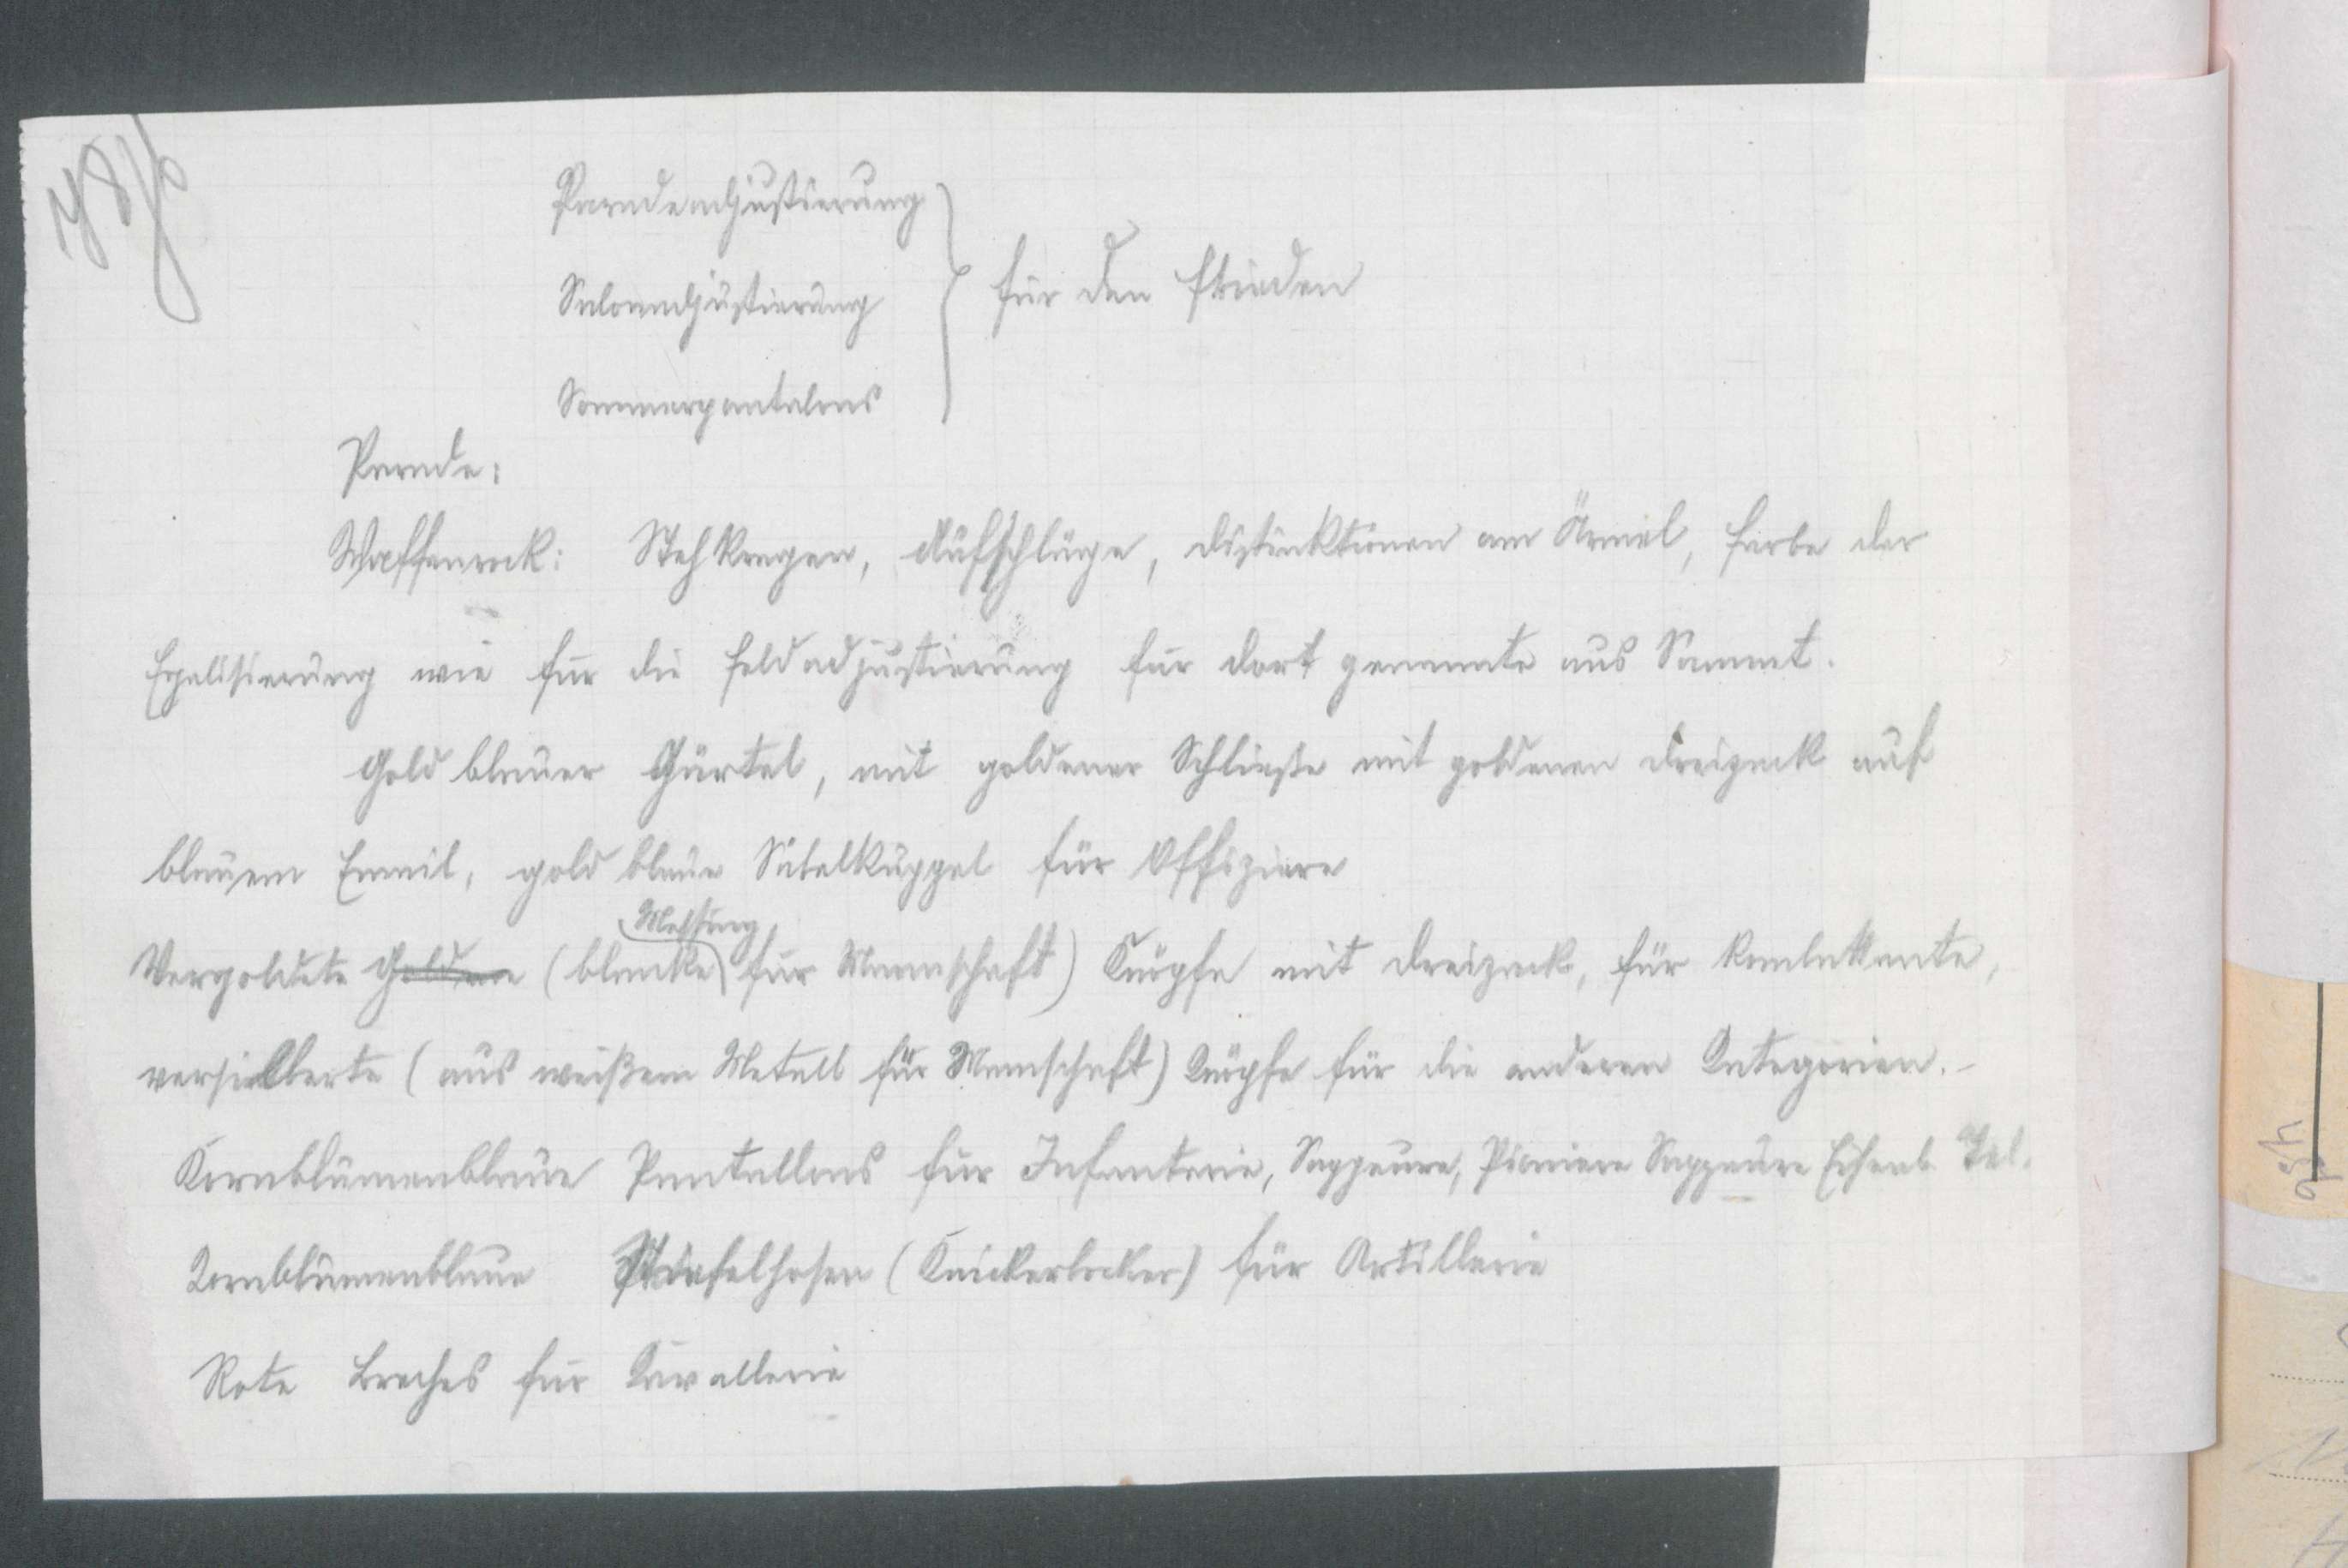 Paradeadjustierung
Salonadjustierung } für den Frieden
Sommerpantalons
Parade:
Waffenrock: Stehkragen, Aufschläge, Distinktionen am Ärmel, Farbe der
Egalisierung wie für die Feldadjustierung für dort genannte aus Sammt.
Gold blauer Gürtel, mit goldener Schließe mit goldenen Dreizack auf
blauem Email, gold blaue Säbelkuppel für Offiziere
Messing
Vergoldete Goldene (blanke für Mannschaft) Knöpfe mit Dreizack, für Kombattante,
versilberte (aus weißem Metall für Mannschaft) Knöpfe für die anderen Kategorien.-
Kornblumenblaue Pantallons für Infanterie, Sappeure, Pioniere Sappeure Eisenb. Tel.
Kornblumenblaue Stiefelhosen (Knickerbocker) für Artillerie
Rote Breches für Kavallerie